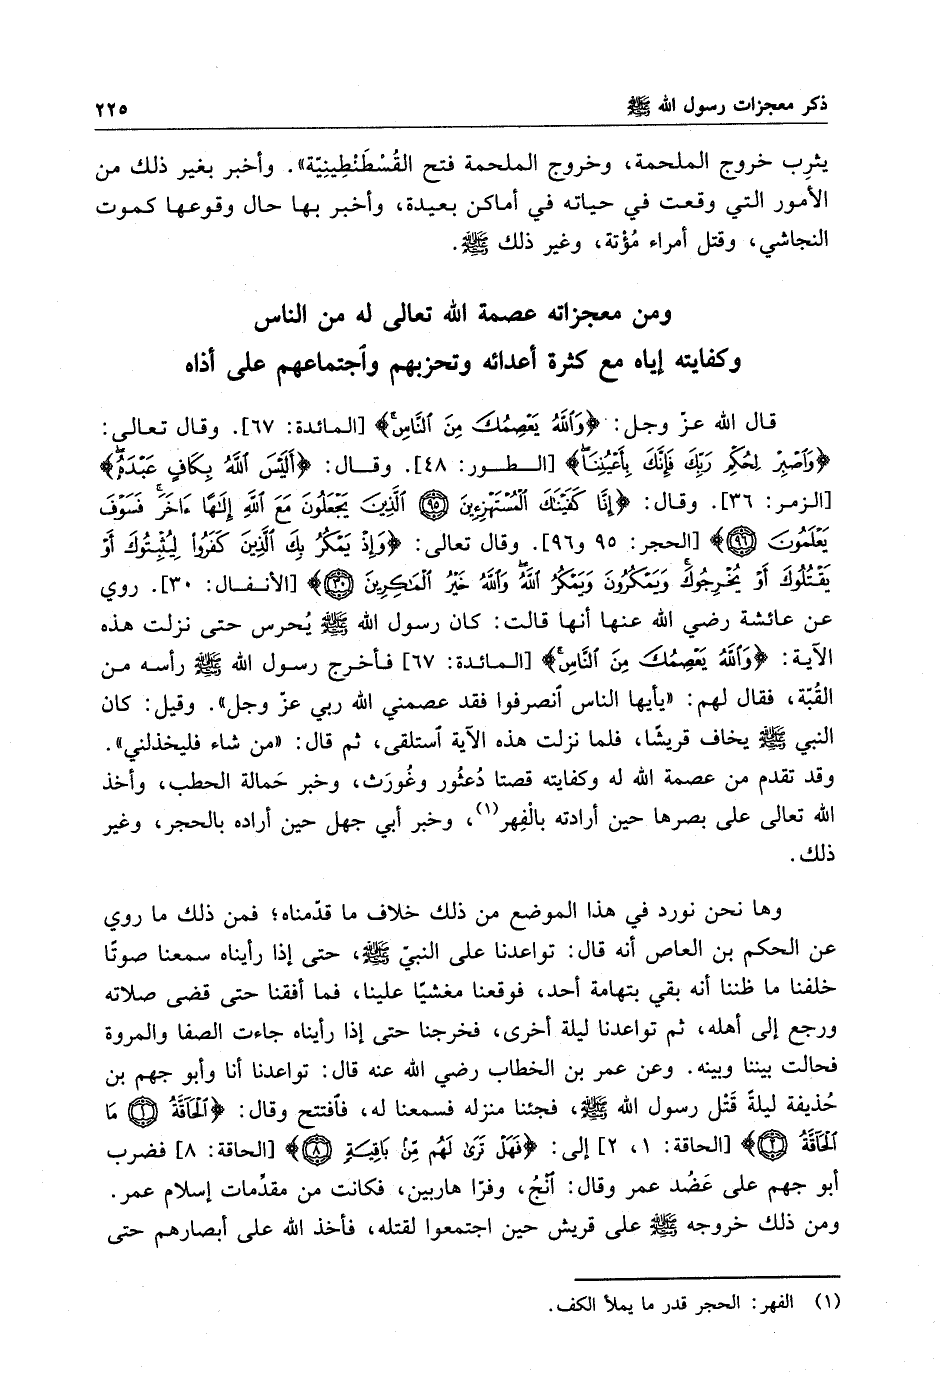 ذكر معجزات رسول الله ﷺ ٢٢٥
يثرب خروج الملحمة، وخروج الملحمة فتح القُسْطَنْطِينِيّة». وأخبر بغير ذلك من
الأمور التي وقعت في حياته في أماكن بعيدة، وأخبر بها حال وقوعها كموت
النجاشي، وقتل أمراء مُؤْتة، وغير ذلك ﷺ.
ومن معجزاته عصمة الله تعالى له من الناس
وكفايته إياه مع كثرة أعدائه وتحزبهم وٱجتماعهم على أذاه
قال الله عزّ وجل: ﴿وَٱللَّهُ يَعْصِمُكَ مِنَ ٱلنَّاسِ﴾ [المائدة: ٦٧]. وقال تعالى:
﴿وَٱصْبِرْ لِحُكْمِ رَبِّكَ فَإِنَّكَ بِأَعْيُنِنَا﴾ [الطور: ٤٨]. وقال: ﴿أَلَيْسَ ٱللَّهُ بِكَافٍ عَبْدَهُ﴾
[الزمر: ٣٦]. وقال: ﴿إِنَّا كَفَيْنَاكَ ٱلْمُسْتَهْزِءِينَ ٩٥ ٱلَّذِينَ يَجْعَلُونَ مَعَ ٱللَّهِ إِلَٰهًا ءَاخَرَ فَسَوْفَ
يَعْلَمُونَ ٩٦﴾ [الحجر: ٩٥ و٩٦]. وقال تعالى: ﴿وَإِذْ يَمْكُرُ بِكَ ٱلَّذِينَ كَفَرُواْ لِيُثْبِتُوكَ أَوْ
يَقْتُلُوكَ أَوْ يُخْرِجُوكَ وَيَمْكُرُونَ وَيَمْكُرُ ٱللَّهُ وَٱللَّهُ خَيْرُ ٱلْمَٰكِرِينَ ٣٠﴾ [الأنفال: ٣٠]. روي
عن عائشة رضي الله عنها أنها قالت: كان رسول الله ﷺ يُحرس حتى نزلت هذه
الآية: ﴿وَٱللَّهُ يَعْصِمُكَ مِنَ ٱلنَّاسِ﴾ [المائدة: ٦٧] فأخرج رسول الله ﷺ رأسه من
القُبّة، فقال لهم: «يأيها الناس ٱنصرفوا فقد عصمني الله ربي عزّ وجل». وقيل: كان
النبي ﷺ يخاف قريشًا، فلما نزلت هذه الآية ٱستلقى، ثم قال: «من شاء فليخذلني».
وقد تقدم من عصمة الله له وكفايته قصتا دُعثُور وغُورَث، وخبر حَمالة الحطب، وأخذ
الله تعالى على بصرها حين أرادته بالْفِهر(١)، وخبر أبي جهل حين أراده بالحجر، وغير
ذلك.
وها نحن نورد في هذا الموضع من ذلك خلاف ما قدّمناه؛ فمن ذلك ما روي
عن الحكم بن العاص أنه قال: تواعدنا على النبيّ ﷺ، حتى إذا رأيناه سمعنا صوتًا
خلفنا ما ظننا أنه بقي بتهامة أحد، فوقعنا مغشيًا علينا، فما أفقنا حتى قضى صلاته
ورجع إلى أهله، ثم تواعدنا ليلة أخرى، فخرجنا حتى إذا رأيناه جاءت الصفا والمروة
فحالت بيننا وبينه. وعن عمر بن الخطاب رضي الله عنه قال: تواعدنا أنا وأبو جهم بن
حُذيفة ليلةً قَتْل رسول الله ﷺ، فجئنا منزله فسمعنا له، فٱفتتح وقال: ﴿ٱلْحَآقَّةُ ١ مَا
ٱلْحَآقَّةُ ٢﴾ [الحاقة: ١، ٢] إلى: ﴿فَهَلْ تَرَىٰ لَهُم مِّنۢ بَاقِيَةٍ ٨﴾ [الحاقة: ٨] فضرب
أبو جهم على عَضُد عمر وقال: ٱنْجُ، وفرّا هاربين، فكانت من مقدِّمات إسلام عمر.
ومن ذلك خروجه ﷺ على قريش حين اجتمعوا لقتله، فأخذ الله على أبصارهم حتى
(١) الفهر: الحجر قدر ما يملأ الكف.